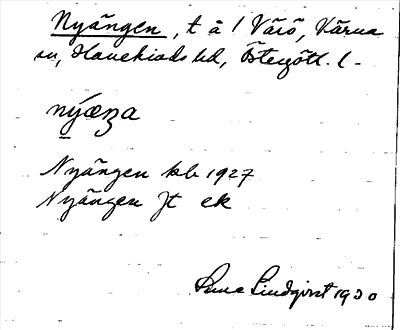 Nyängen, t å 1 Värö, Värna
sn, Hanekinds hd, Östergötl. l-
Nyängen kb 1927
Nyängen Jt ek
Sune Lindqvist 1930